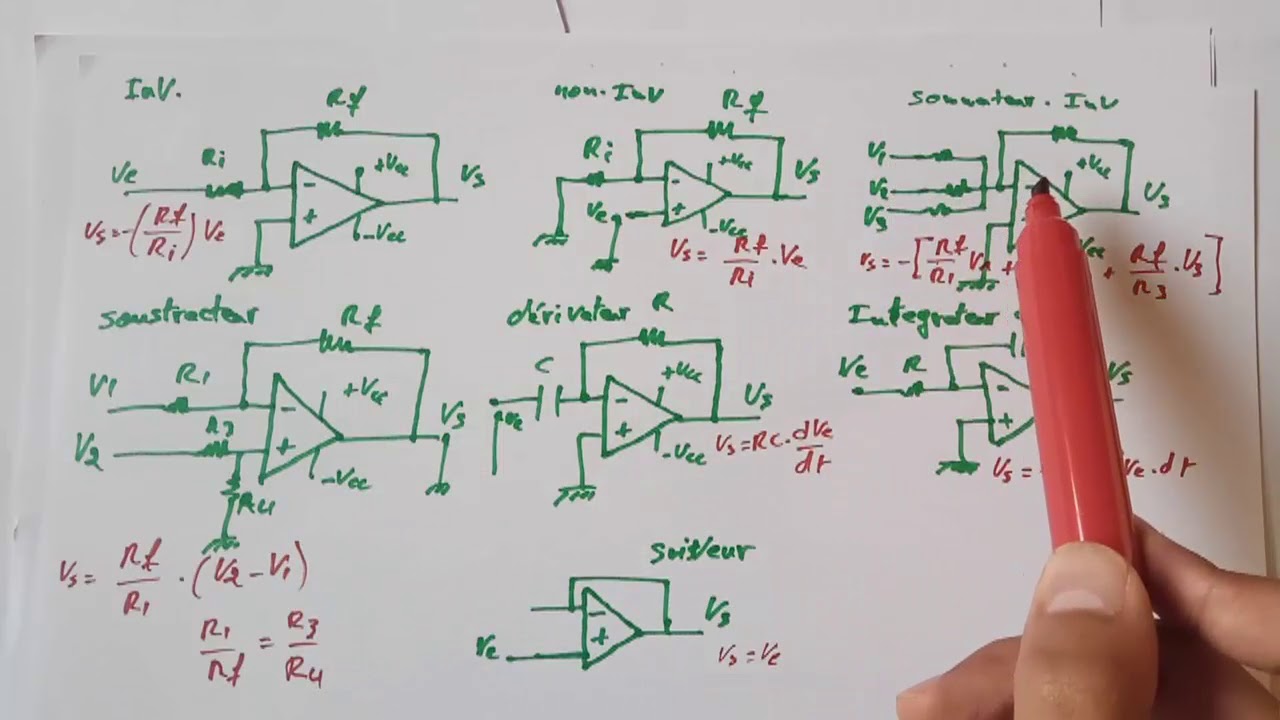 Inv.
Rf
Ri
Ve
-
+
+Vcc
-Vcc
Vs
Vs=-(Rf/Ri)Ve
non.Inv
Rf
Ri
Ve
-
+
+Vcc
-Vcc
Vs
Vs= Rf/Ri .Ve
sommateur.Inv
V1
V2
V3
+Vcc
Vs
Vs=-[Rf/R1 V1 +
+ Rf/R3 .V3]
soustracteur
Rf
V1
R1
V2
R3
R4
-
+
+Vcc
-Vcc
Vs
Vs= Rf/R1 .(V2-V1)
R1/Rf = R3/R4
dérivateur
R
C
Ve
-
+
+Vcc
-Vcc
Vs
Vs=RC.dVe/dt
Integrateur
Ve
R
-
+
Vs
Vs=
Ve.dt
suiveur
Ve
-
+
Vs
Vs=Ve